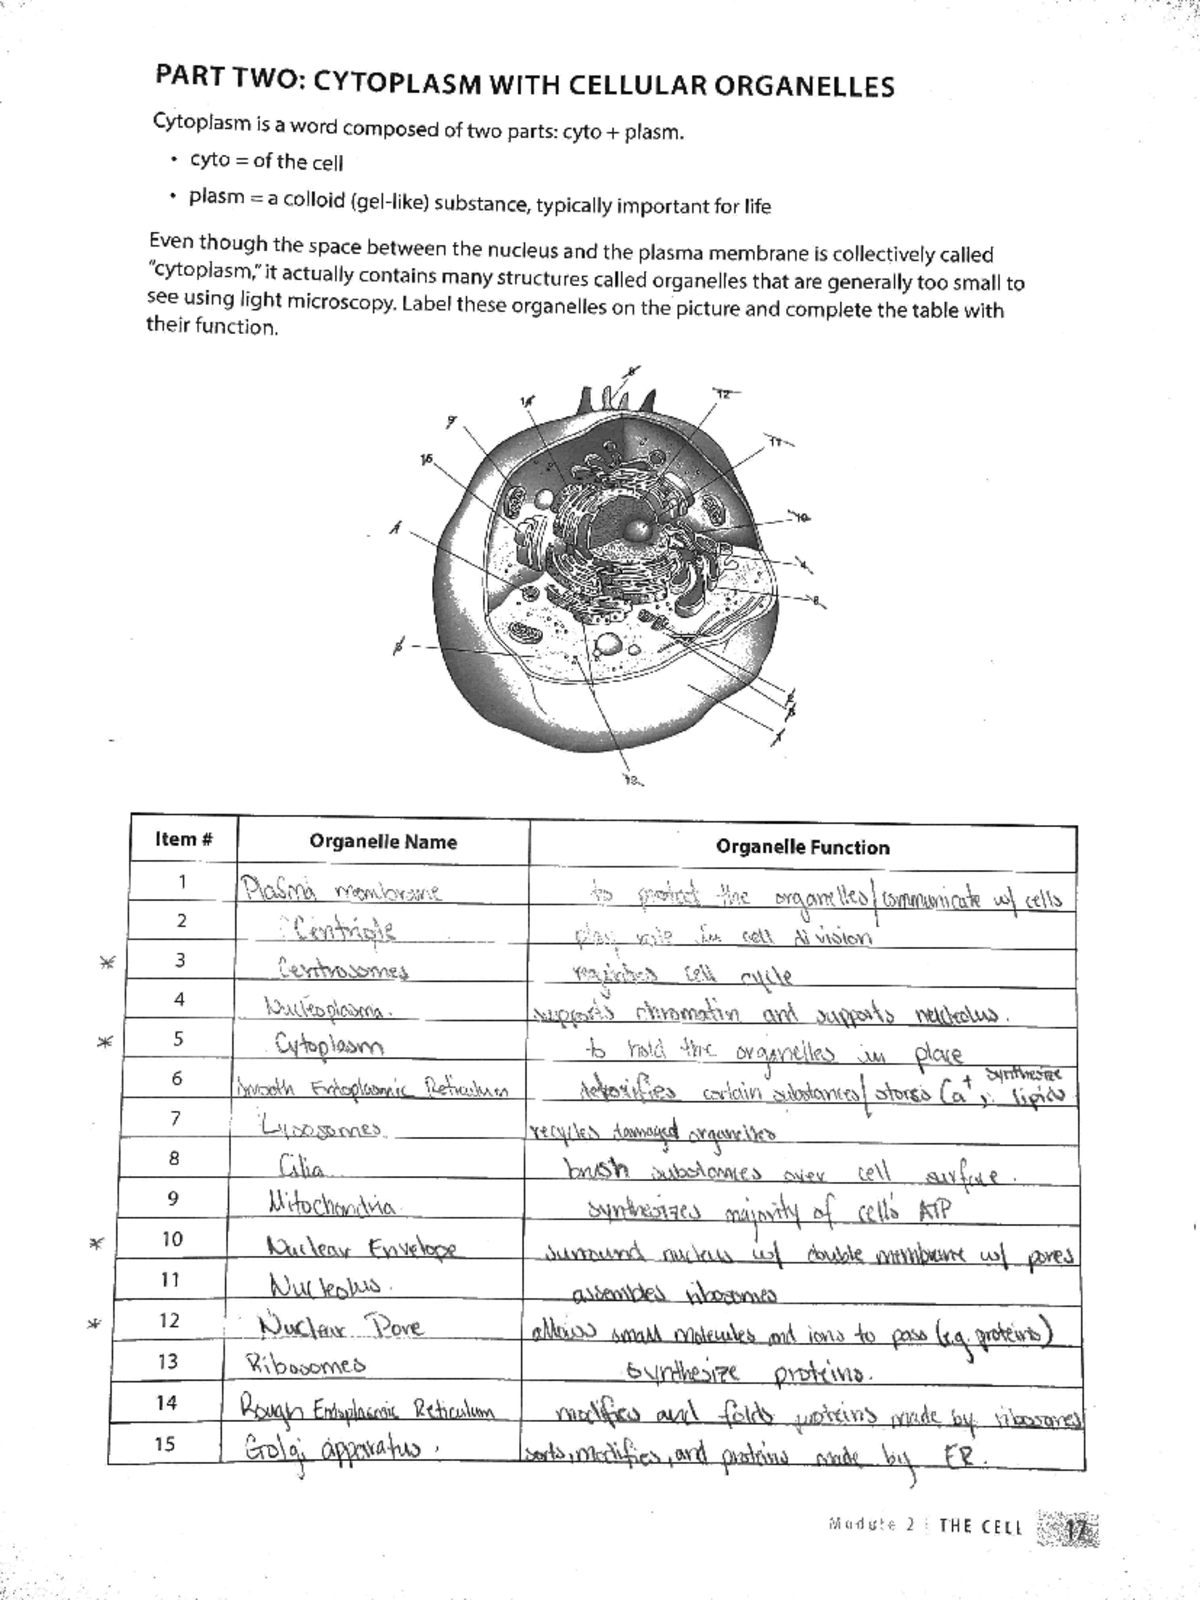 PART TWO: CYTOPLASM WITH CELLULAR ORGANELLES
Cytoplasm is a word composed of two parts: cyto + plasm.
• cyto = of the cell
• plasm = a colloid (gel-like) substance, typically important for life
Even though the space between the nucleus and the plasma membrane is collectively called
"cytoplasm," it actually contains many structures called organelles that are generally too small to
see using light microscopy. Label these organelles on the picture and complete the table with
their function.
8
14
12
9
11
15
10
4
6
2
3
1
13
Item # Organelle Name Organelle Function
1 Plasma membrane to protect the organelles/communicate w/ cells
2 Centriole play role in cell division
* 3 Centrosomes regulates cell cycle
4 Nucleoplasma. supports chromatin and supports nucleolus.
* 5 Cytoplasm to hold the organelles in place
6 Smooth Endoplasmic Reticulum detoxifies certain substances/stores Ca+, synthesize lipids
7 Lysosomes recycles damaged organelles
8 Cilia brush substances over cell surface.
9 Mitochondria synthesizes majority of cell's ATP
* 10 Nuclear Envelope surround nucleus w/ double membrane w/ pores
11 Nucleolus. assembles ribosomes
* 12 Nuclear Pore allows small molecules and ions to pass (e.g. proteins)
13 Ribosomes synthesize proteins.
14 Rough Endoplasmic Reticulum modifies and folds proteins made by ribosomes
15 Golgi apparatus. sorts, modifies, and proteins made by ER.
Module 2 | THE CELL 17